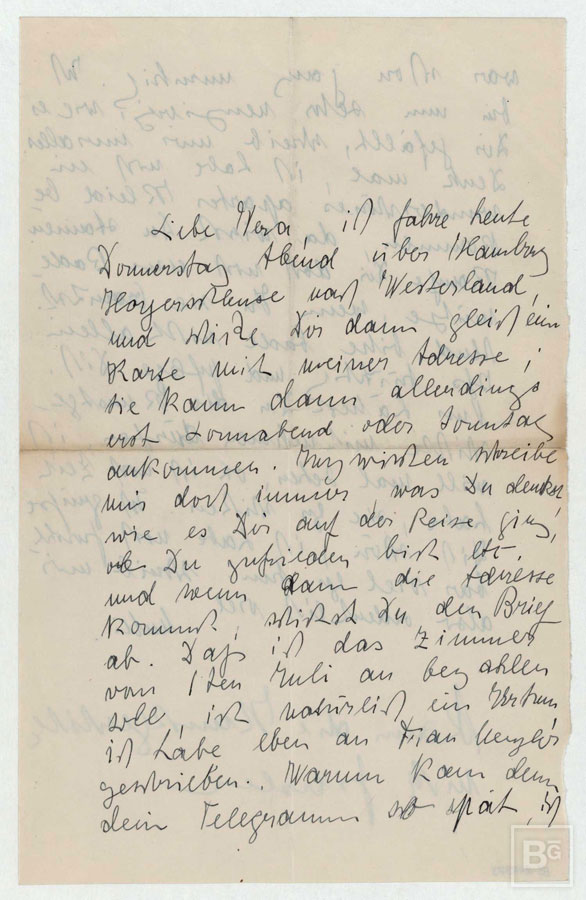 Liebe Vera ich fahre heute
Donnerstag Abend über Hamburg
Hoyerschleuse nach Westerland,
und schicke Dir dann gleich ein
Karte mit meiner Adresse;
sie kann dann allerdings
erst Sonnabend oder Sonntag
ankommen. Inzwischen schreibe
mir doch immer, was Du denkst,
wie es Dir auf der Reise ging,
ob Du zufrieden bist etc.
und wenn dann die Adresse
kommt, schickst Du den Brief
ab. Daß ich das Zimmer
vom 1ten Juli an bezahlen
soll ist natürlich ein Irrtum
ich habe eben an Frau
geschrieben. Warum kam denn
dein Telegramm so spät, ich
BG